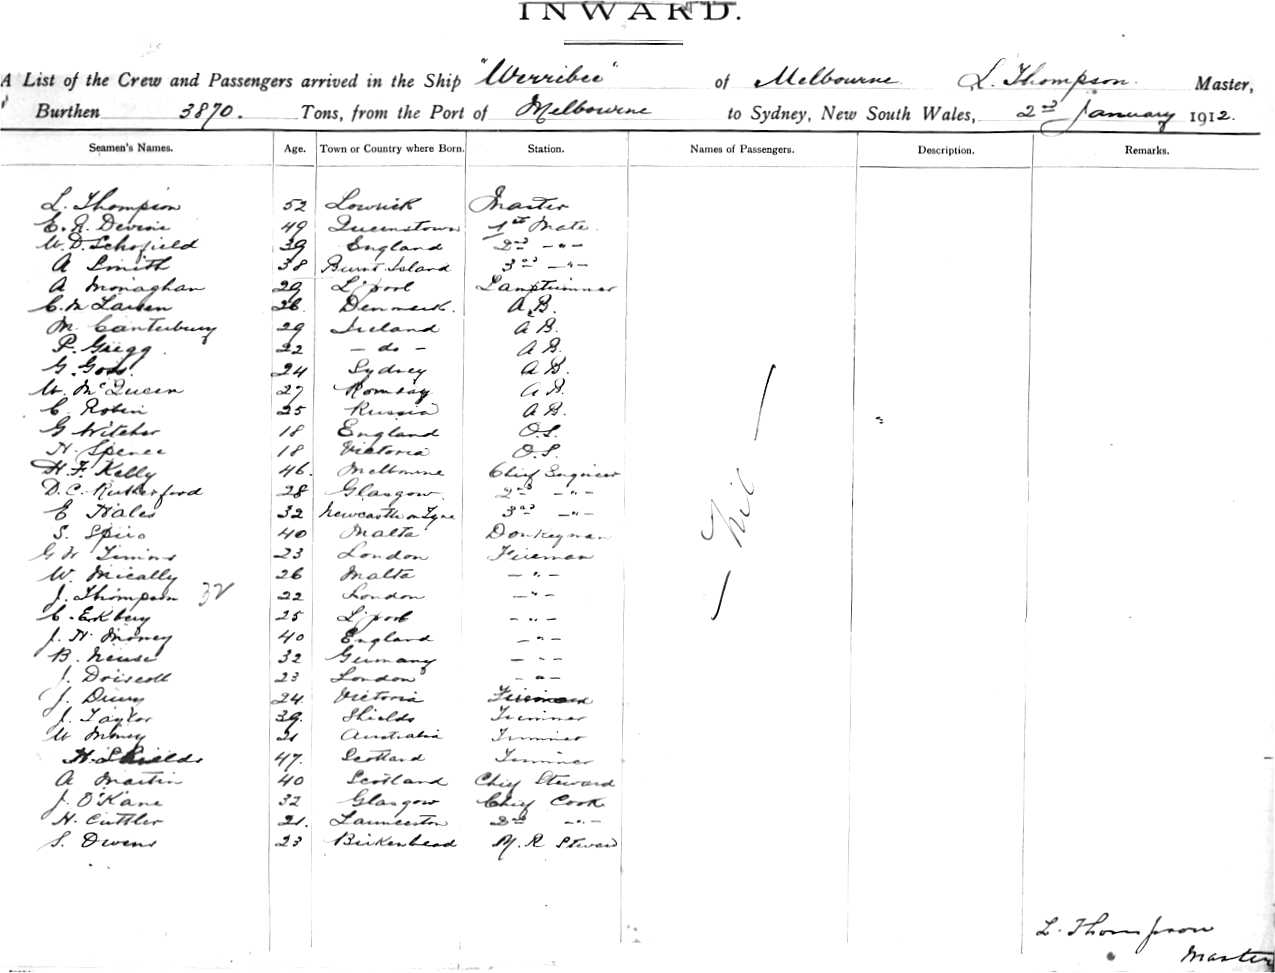 INWARD.
A List of the Crew and Passengers arrived in the Ship "Werribee" of Melbourne L. Thompson Master,
Burthen 3870. Tons, from the Port of Melbourne to Sydney, New South Wales, 2nd January 1912.
Seamen's Names. Age. Town or Country where Born. Station. Names of Passengers. Description. Remarks.
L. Thompson 52 Lowick Master
E. R. Devine 49 Queenstown 1st Mate
W. D. Schofield 39 England 2nd —"—
A Smith 38 Burnt Island 3rd —"—
A Monaghan 29 L'pool Lamptrimmer
C. M Larsen 26. Denmark. A.B.
M. Canterbury 29 Ireland A B.
P. Gregg 22 — do — A B.
G. Goss. 24 Sydney A B.
W. McQueen 27 A B.
C. Robin 25 Russia A B.
G Witcher 18 England O.S.
H. Spence 18 Victoria O.S.
H. F. Kelly 46. Melbourne Chief Engineer
D. C. Rutherford 28 Glasgow. 2nd —"—
E Hales 32 Newcastle on Tyne 3rd —"—
S. Spiro 40 Malta Donkeyman
G W Timms 23 London Fireman
W. Mically 26 Malta —"—
J. Thompson 32 22 London —"—
C. Ekberg 25 L'pool —"—
J. H. Money 40 England —"—
B. Neuse 32 Germany —"—
J. Driscoll 23 London —"—
J. Drury 24 Victoria Fireman
J. Taylor 39. Shields Trimmer
W Money 21 Australia Trimmer
H. Shields 47. Scotland Trimmer
A Martin 40 Scotland Chief Steward
J. O'Kane 32 Glasgow Chief Cook
H. Cuttler 21. Launceston 2nd —"—
S. Owens 23 Birkenhead M. R Steward
— Nil —
L. Thompson
Master